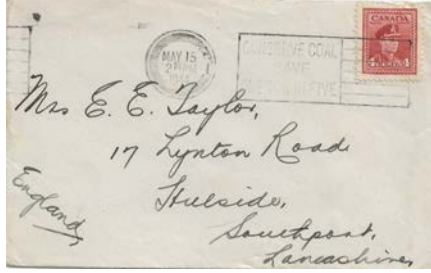 MAY 15
PM
CONSERVE COAL
SAVE
ONE TON IN FIVE
CANADA
4 4
Mrs E. E. Taylor,
17 Lynton Road
Hillside,
Southport,
Lancashire,
England,